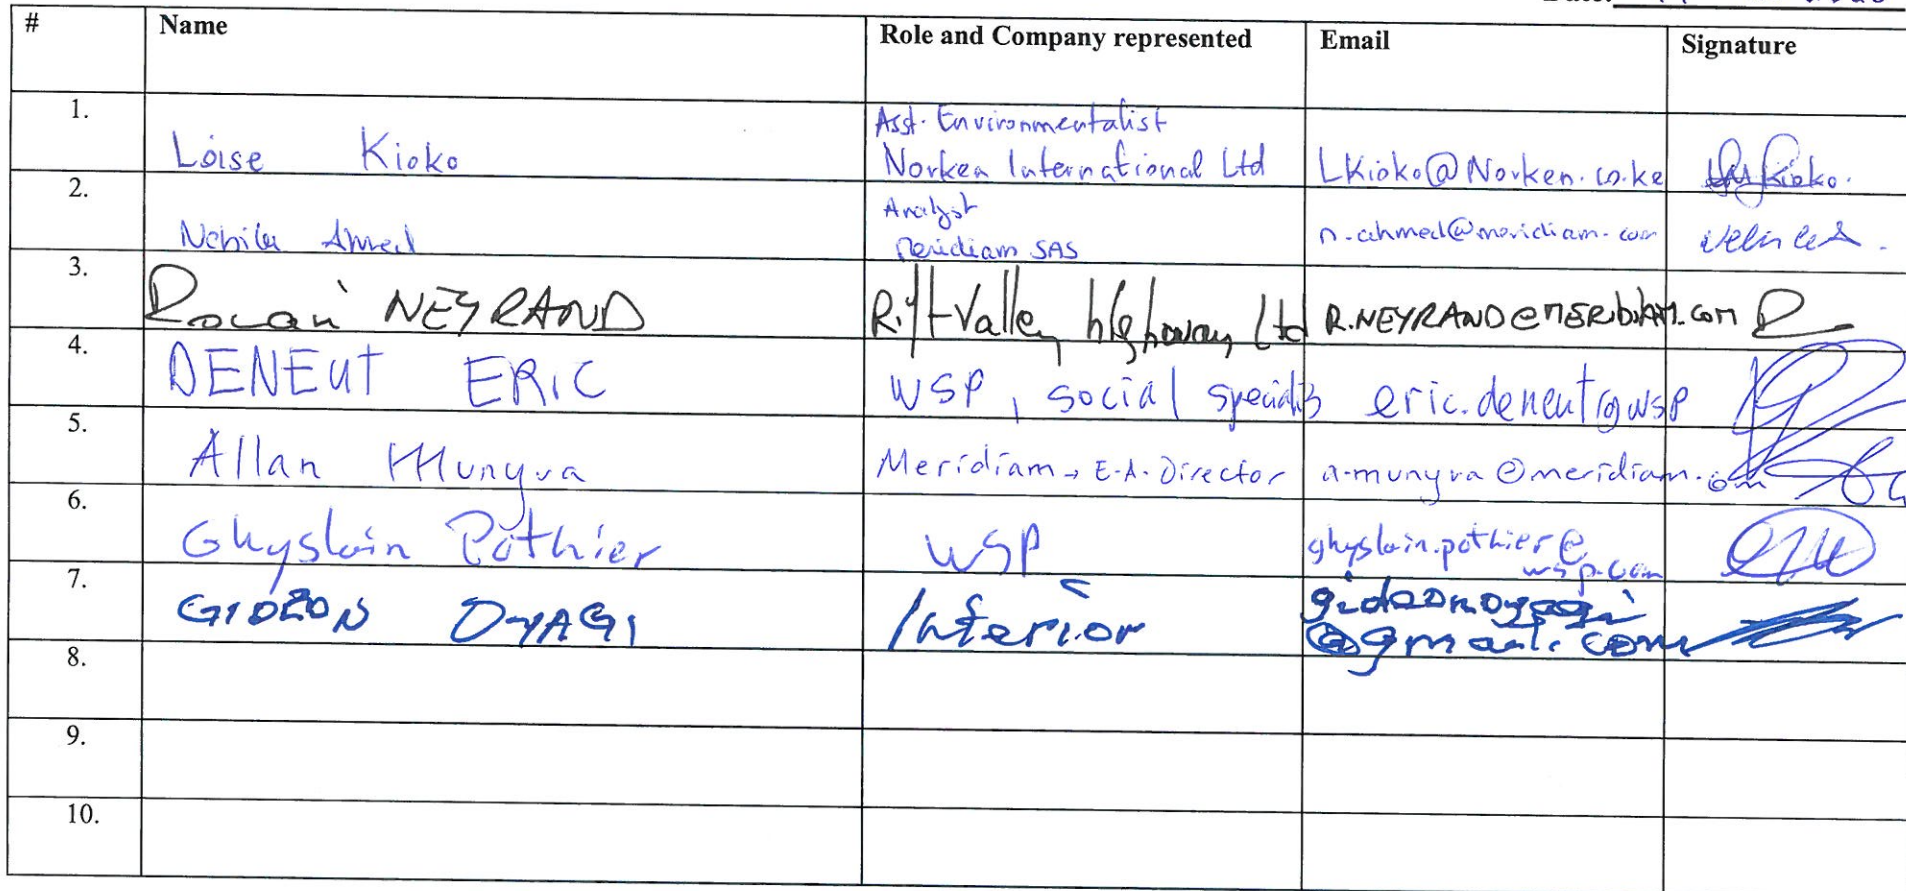 Date:
# Name Role and Company represented Email Signature
1. Loise Kioko Asst. Environmentalist Norken International Ltd LKioko@Norken.co.ke Kioko.
2. Ahmed Analyst Meridiam SAS n.ahmed@meridiam.com
3. NEYRAND Rift Valley highway Ltd R.NEYRAND@MERIDIAM.com
4. DENEUT ERIC WSP, social specialis eric.deneut@wsp
5. Allan Munyua Meridiam, E.A. Director a.munyua@meridiam.com
6. Ghyslain Pothier WSP ghyslain.pothier@
wsp.com
7. GIDEON OYAGI Interior gideonoyagi
@gmail.com
8.
9.
10.